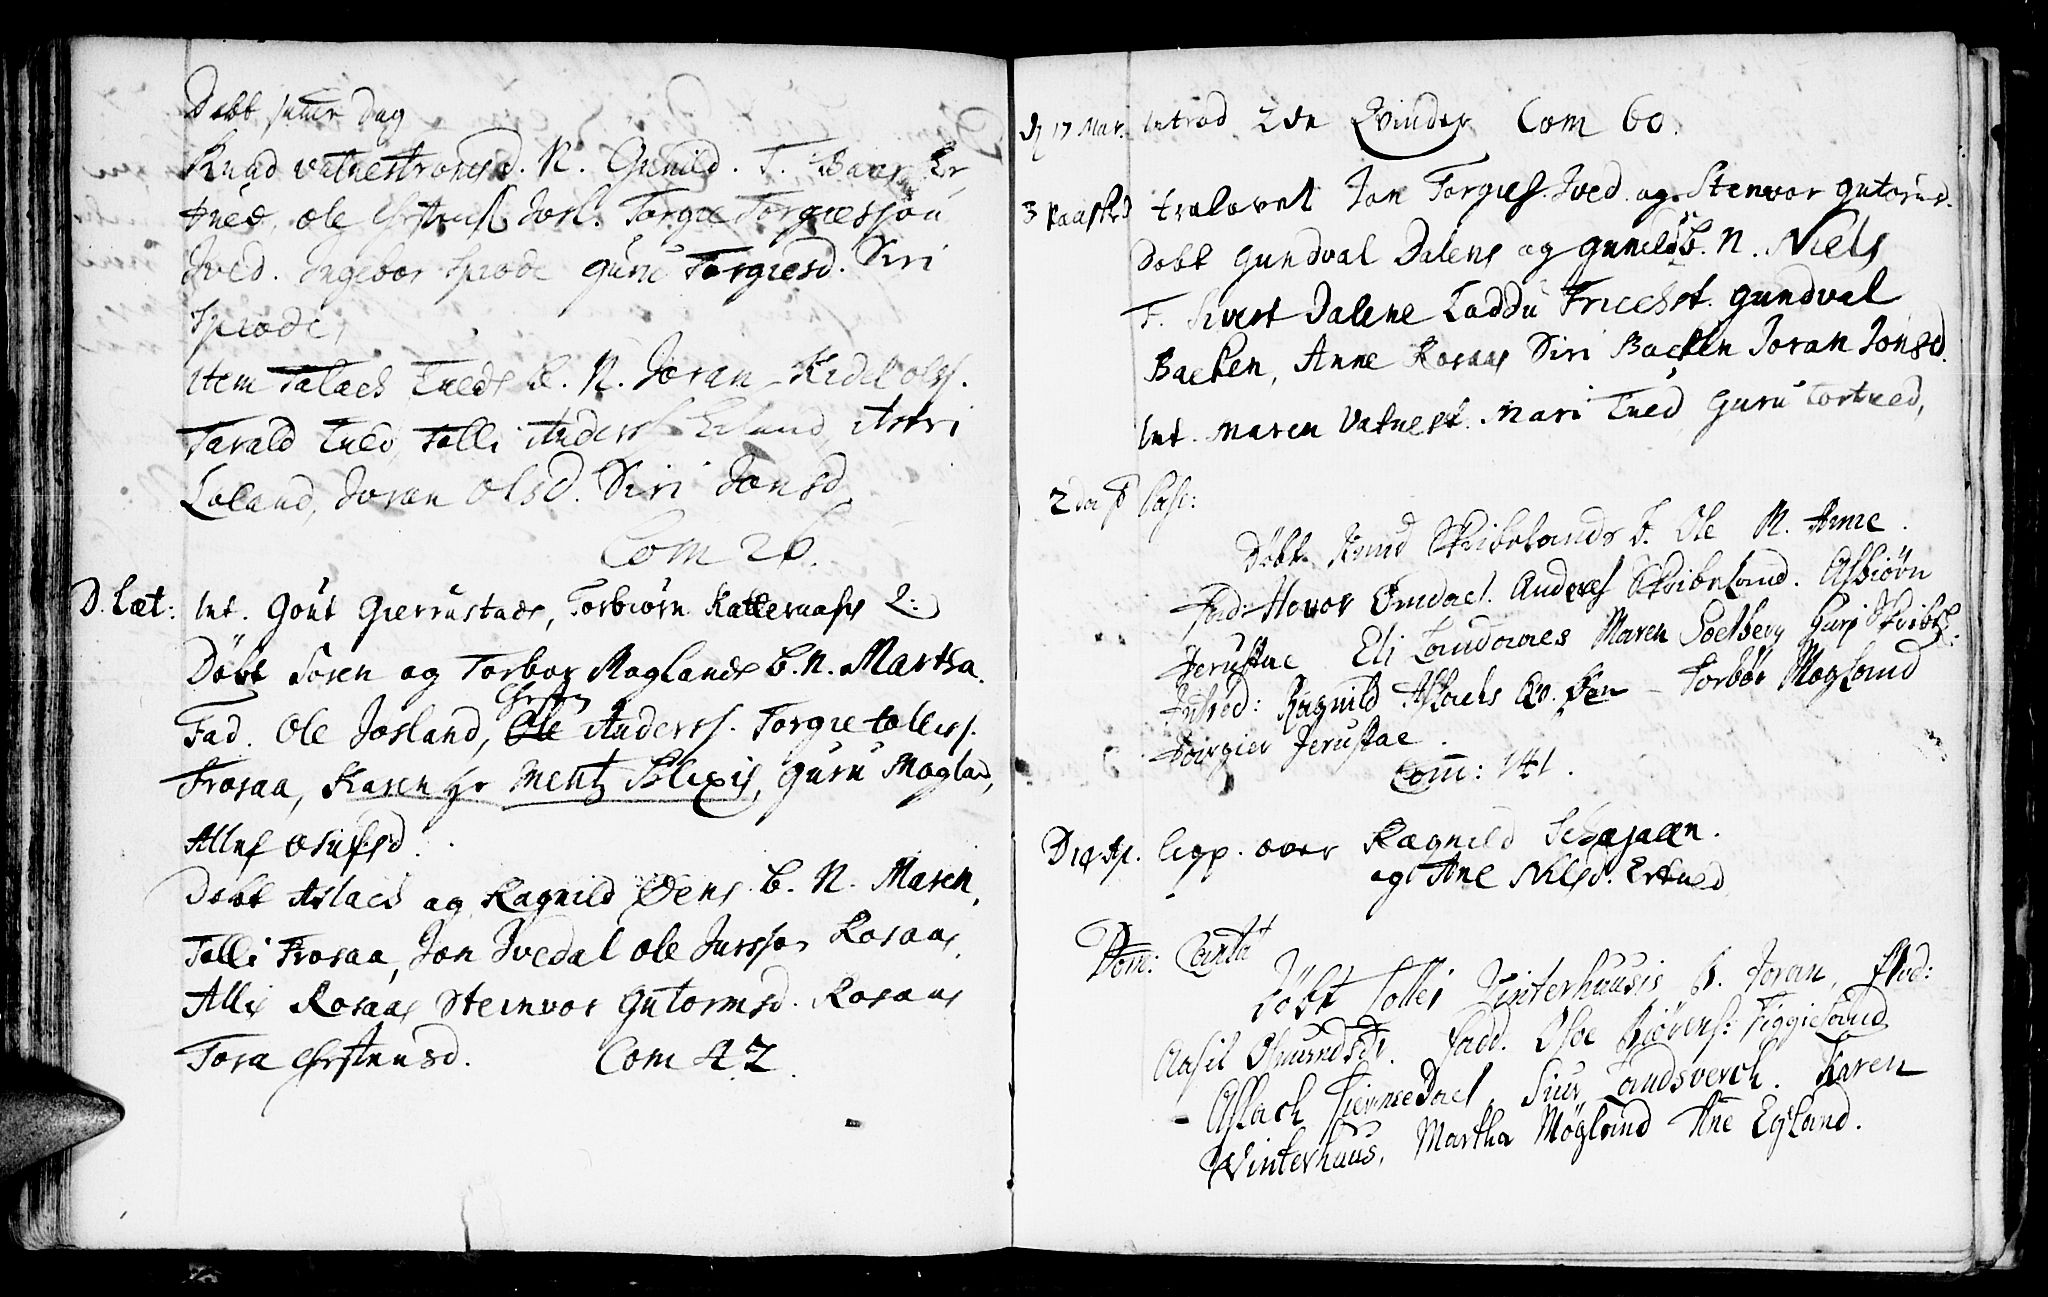 Døbt samme Dag
Knud Vatnestrømsd. N. Gunild. T. Baar Er
tued, Ole Chrstensß Josl. Torgie Torgiessøn
Ived. Ingebor Spiode Guru Torgiesd. Siri
Spiode,
item Talach Tueds N. Joran Kidel Olss.
Tarald Tued, Tolli Anders Eeland, Astri
Loland, Joran Olsd. Siri Jonsd.
Com 26.
D. Læt: Int. Gout Gierrustads, Torbiørn Katteraases 2:
Døbt Soren og Torbor Moglands B. N. Martha.
Chrsten
Fad. Ole Josland, Ole Anderss. Torgie Tolless.
Frosaa, Karen Hr Mentz Alexis, Guru Mogland,
Alluf Olufsd.
Døbt Aslach og Ragnild Øens B. N. Maren,
Tolli Frosaa, Jon Ivedal Ole Jurssøn Rosaas,
Allis Rosaas Steinvor Gutormsd. Rosaas
Tora Chrstensd. Com 42.
D 17 Mar. Introd 2de Qvinder Com 60.
3 Paaskd trolovet Jon Torgies. Ived. og Stenvor Gutormsd.
Døbt Gundval Dalens og Gunilds B. N. Niels
T. Sivert Dalene Laddu Friechst. Gundval
Bachen, Anne Rosaas Siri Bachen Joran Jonsd.
Int. Maren Vatnest. Mari Tued Guru Tortued,
2 do p Pasc:
Døbt Knud Skribelands D. Ole N. Anne.
Fad: Hovor Omdael. Anders Skribeland. Asbiørn
Jerustae Eli Landaaes Maren Soelberg Guri Skribel:
Introd: Ragnild Aslachs Qv. Øen - Torbør Mogland
Torgier Jerustae.
Com: 141.
D 14 Ap. ligp. over Ragnild Schajaaen.
og Ane Nilsd. Ertued
Dom: Cantat
Døbt Tolleı Vinterhuusis B. Joran,
Aasil Osmundsdr. Fadd. Osoe Biørens: Tiggieland
Aslach Tiennedael Siur Landsverch. Karen
Winterhuus, Martha Møgland Ane Egland.